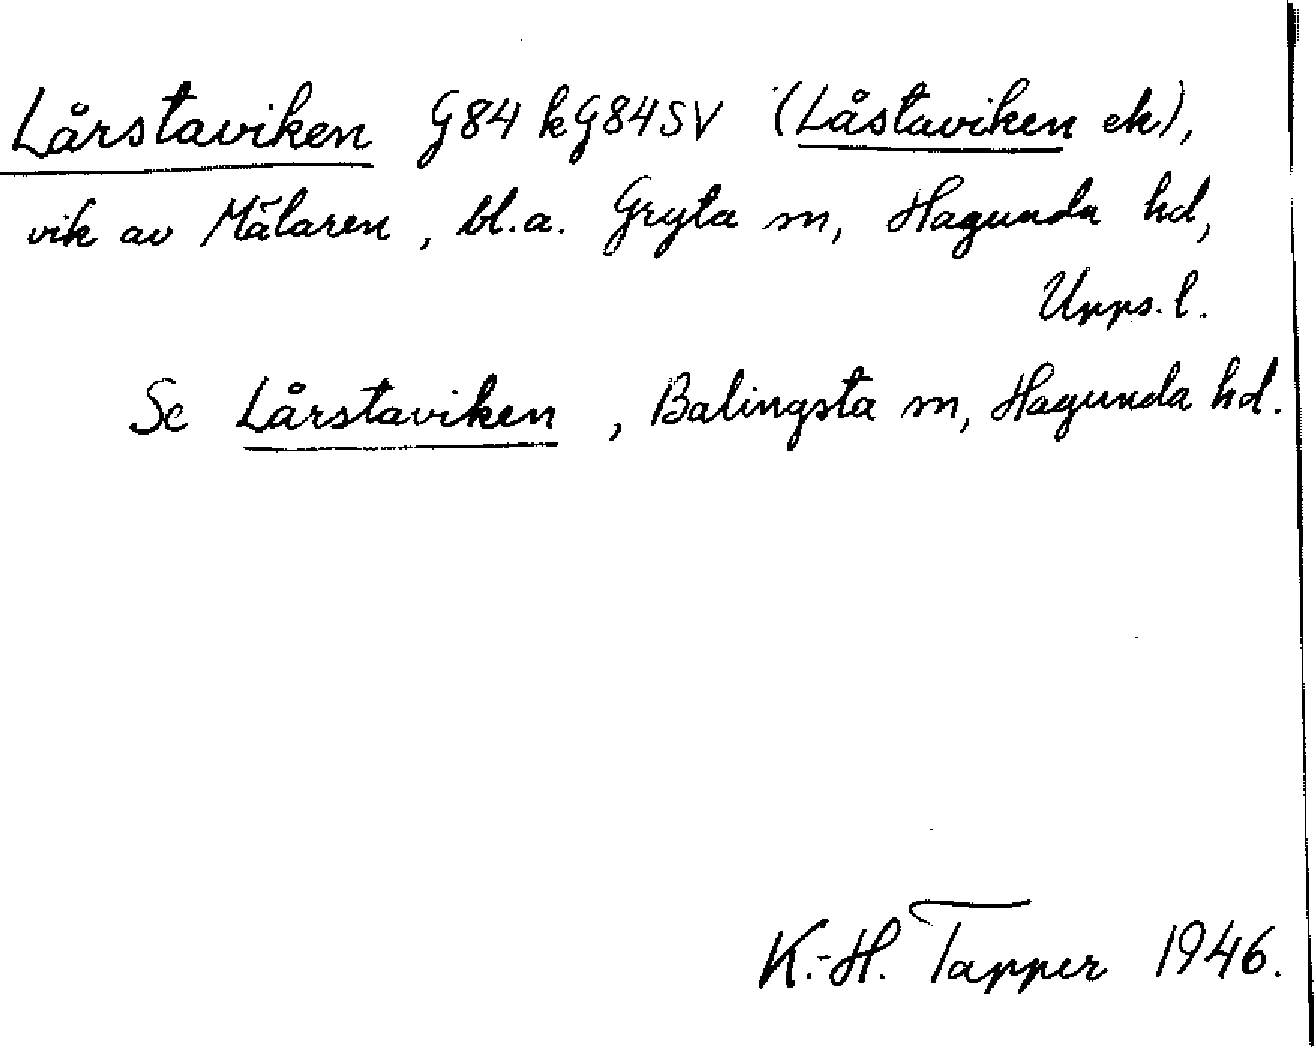 Lårstaviken G84 kG84SV (Låstaviken ek),
vik av Mälaren, bl.a. Gryta sn, Hagunda hd,
Upps. l.
Se Lårstaviken, Balingsta sn, Hagunda hd.
K.-H. Tapper 1946.